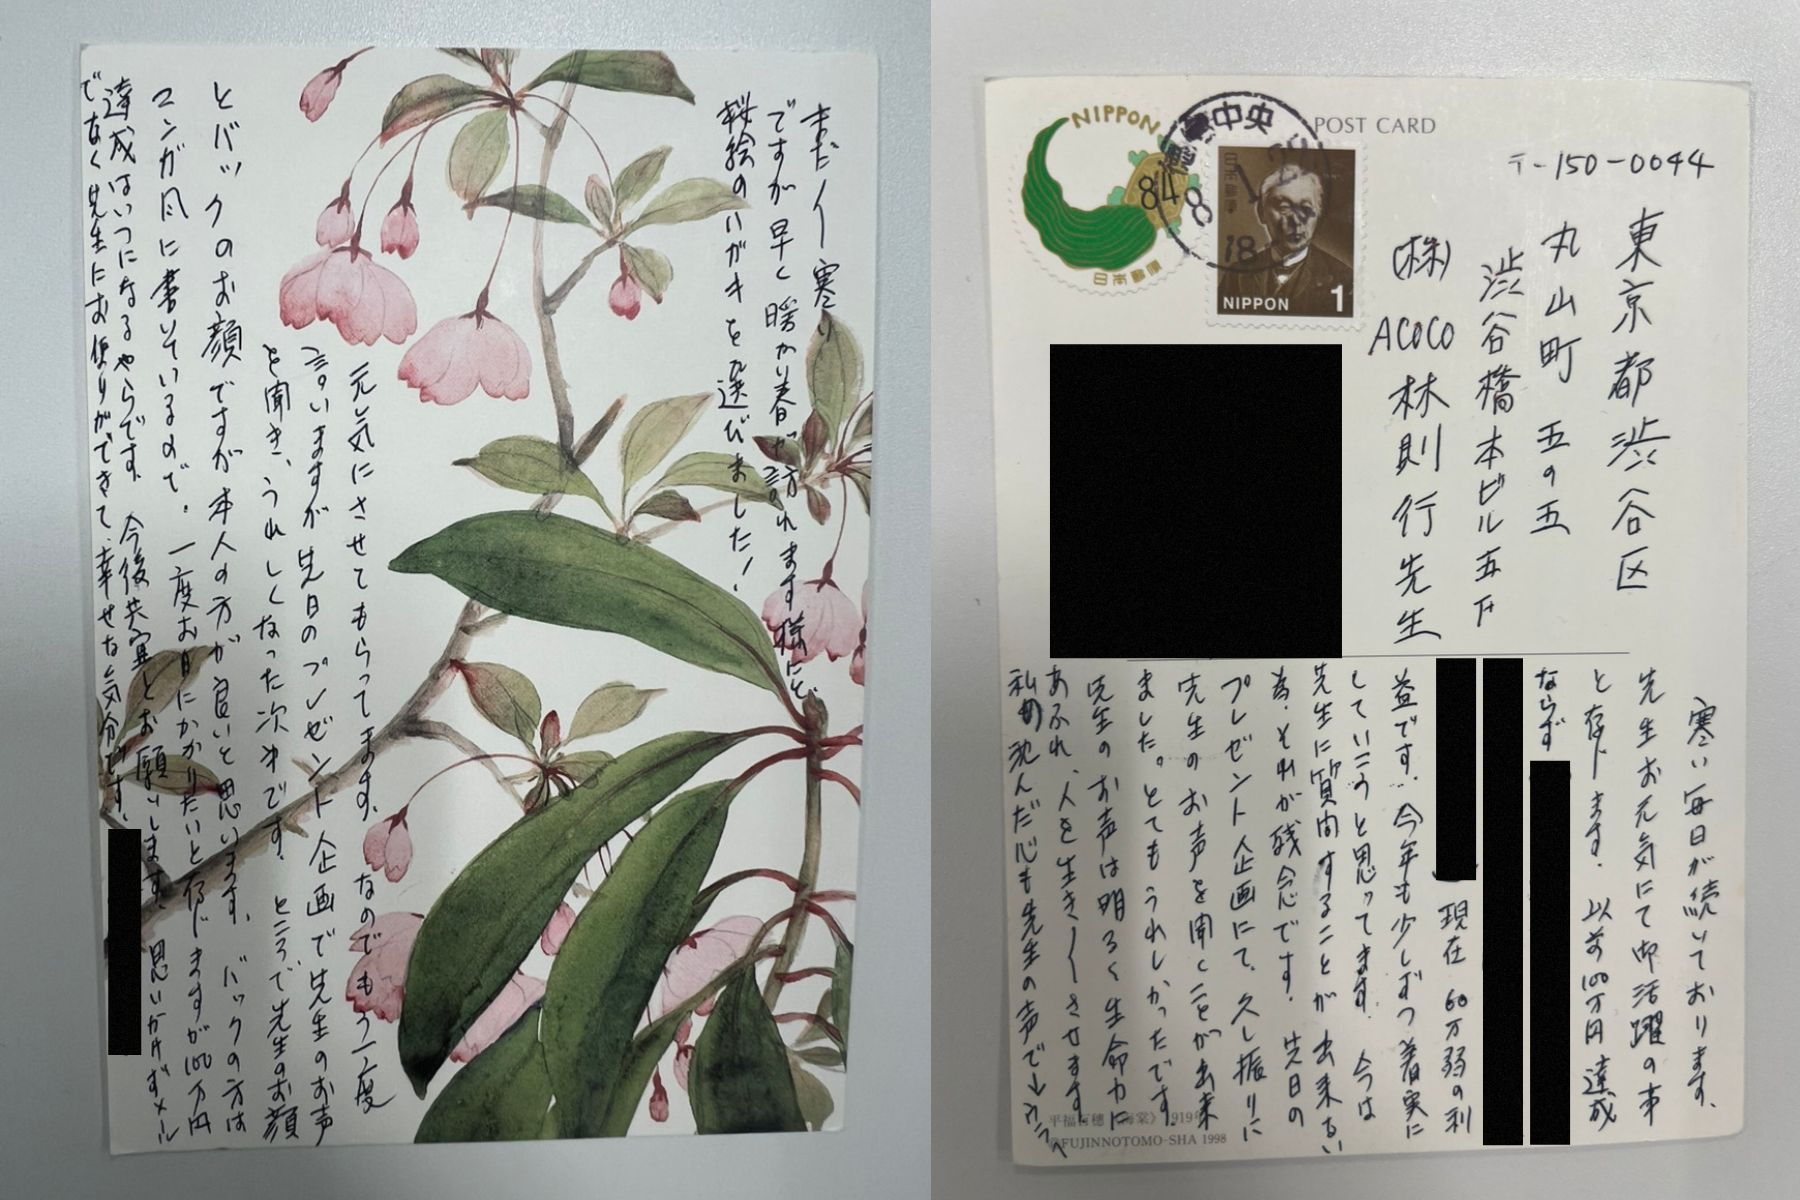 まだ〳〵寒い
ですが早く暖かい春が訪れます様にと、
桜絵のハガキを選びました！
元気にさせてもらってます。なのでもう一度
言いますが先日のプレゼント企画で先生のお声
を聞き、うれしくなった次第です。ところで先生のお顔
とバックのお顔ですが本人の方が良いと思います。バックの方は
マンガ風に書いているので。一度お目にかかりたいと存じますが100万円
達成はいつになるやらです。今後共宜しくお願いします。思いがけずメール
でなく先生にお便りができて、幸せな気分です。
POST CARD
NIPPON
84
日本郵便
日本郵便
NIPPON 1
中央
8
18
〒-150-0044
東京都渋谷区
丸山町 五の五
渋谷橋本ビル五F
(株) ACOCO 林則行先生
寒い毎日が続いております。
先生お元気にて御活躍の事
と存じます。以前100万円達成
ならず
現在 60万弱の利
益です。今年も少しずつ着実に
していこうと思ってます。今は
先生に質問することが出来ない
為、それが残念です。先日の
プレゼント企画にて、久し振りに
先生のお声を聞くことが出来
ました。とてもうれしかったです。
先生のお声は明るく生命力に
あふれ、人を生き〳〵させます
私の沈んだ心も先生の声で→ウラへ
平福百穂《海棠》1919年
©FUJINNOTOMO-SHA 1998